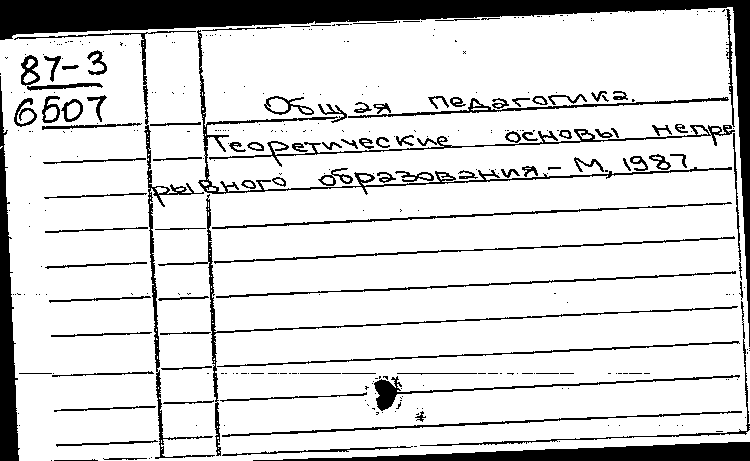 87-3
6507
Общая педагогика.
Теоретические основы непре
рывного образования.- М, 1987.